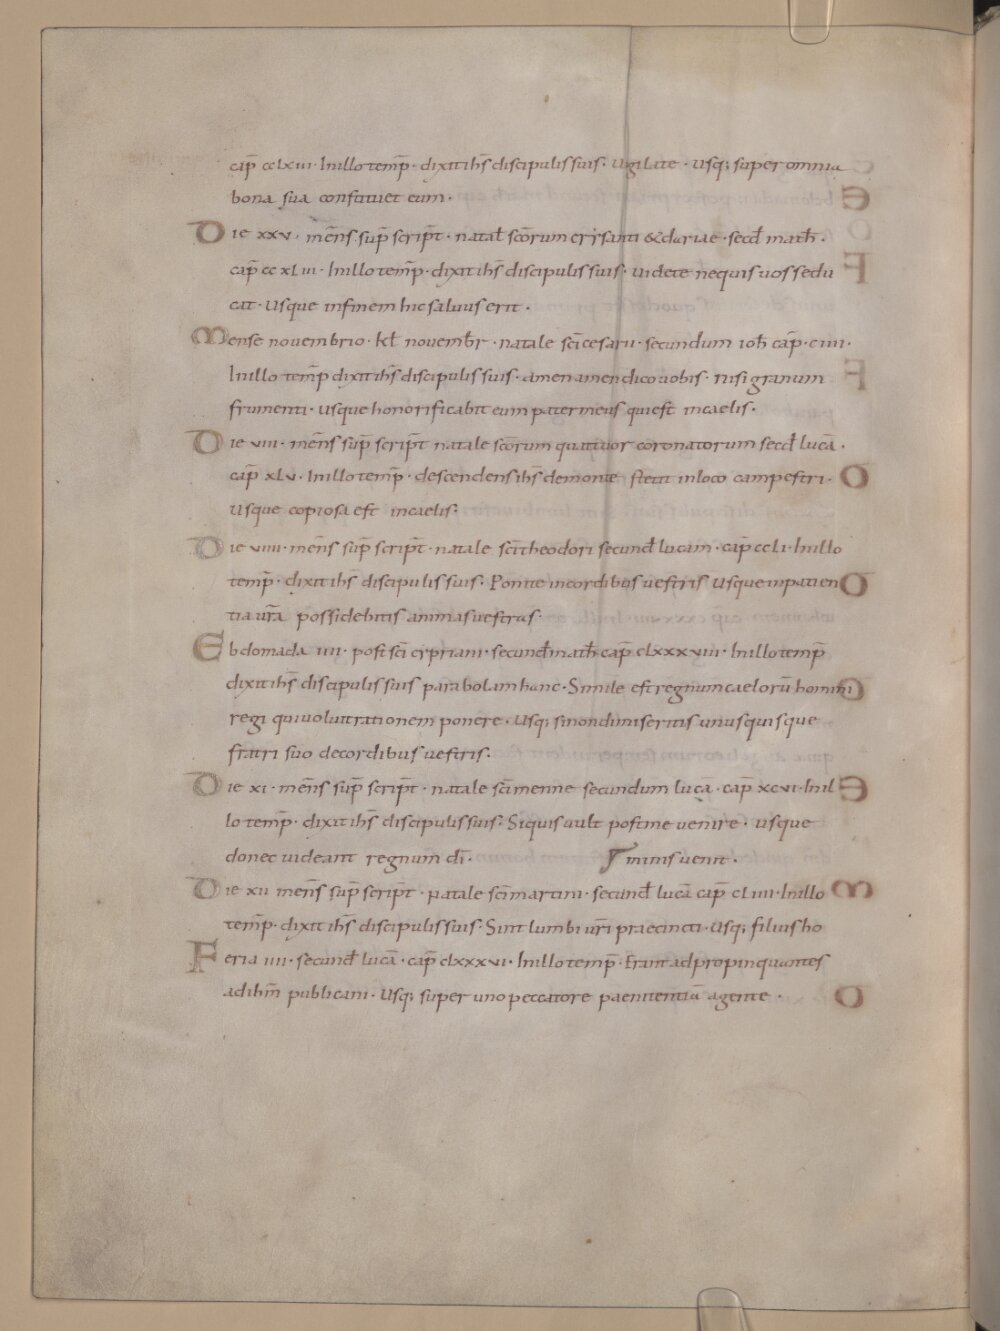 cap̄ cclxiii· In illo temp̄· dixit ih̄s discipulis suis· Uigilate· Usq; super omnia
bona sua constituet eum·
Die xxv· mēns sup̄ script̄· natal̄ scōrum crysanti & dariae· secd̄ math̄·
cap̄ cc xl iii· In illo temp̄· dixit ih̄s discipulis suis· uidete nequis uos sedu
cat· Usque in finem hic saluus erit·
Mense nouembrio· kl̄ nouemb̄r· natale sc̄i cesarii· secundum ioh̄ cap̄· c iiii·
In illo temp̄ dixit ih̄s discipulis suis· amen amen dico uobis· nisi granum
frumenti· usque honorificabit eum pater meus qui est in caelis·
Die viii· mēns sup̄ script̄ natale scōrum quattuor coronatorum secd̄ lucā·
cap̄ xlv· In illo temp̄· descendens ih̄s de monte stetit in loco campestri·
Usque copiosa est in caelis·
Die viiii· mēns sup̄ script̄· natale sc̄i theodori secund̄ lucam· cap̄ ccli· In illo
temp̄· dixit ih̄s discipulis suis· Ponite in cordibus uestris Usque in patien
tia ur̄a possidebitis animas uestras·
Ebdomada iiii· post sc̄i cypriani· secund̄ math̄ cap̄ clxxxviii· In illo temp̄
dixit ih̄s discipulis suis parabolam hanc· Simile est regnum caelorū homini
regi qui uoluit rationem ponere· Usq; si non dimiseritis unusquisque
fratri suo de cordibus uestris·
Die xi· mēns sup̄ script̄· natale sc̄i menne secundum lucā· cap̄ xcvi· In il
lo temp̄· dixit ih̄s discipulis suis· Siquis uult post me uenire· usque
donec uideant regnum dī· minis uenit·
Die xii mēns sup̄ script̄· natale sc̄i martini· secund̄ lucā cap̄ cliiii· In illo
temp̄· dixit ih̄s discipulis suis· Sint lumbi ur̄i praecincti· Usq; filius ho
Feria iiii· secund̄ lucā· cap̄ clxxxvi· In illo temp̄· Erant adpropinquantes
ad ihm̄ publicani· Usq; super uno peccatore paenitentiā agente·